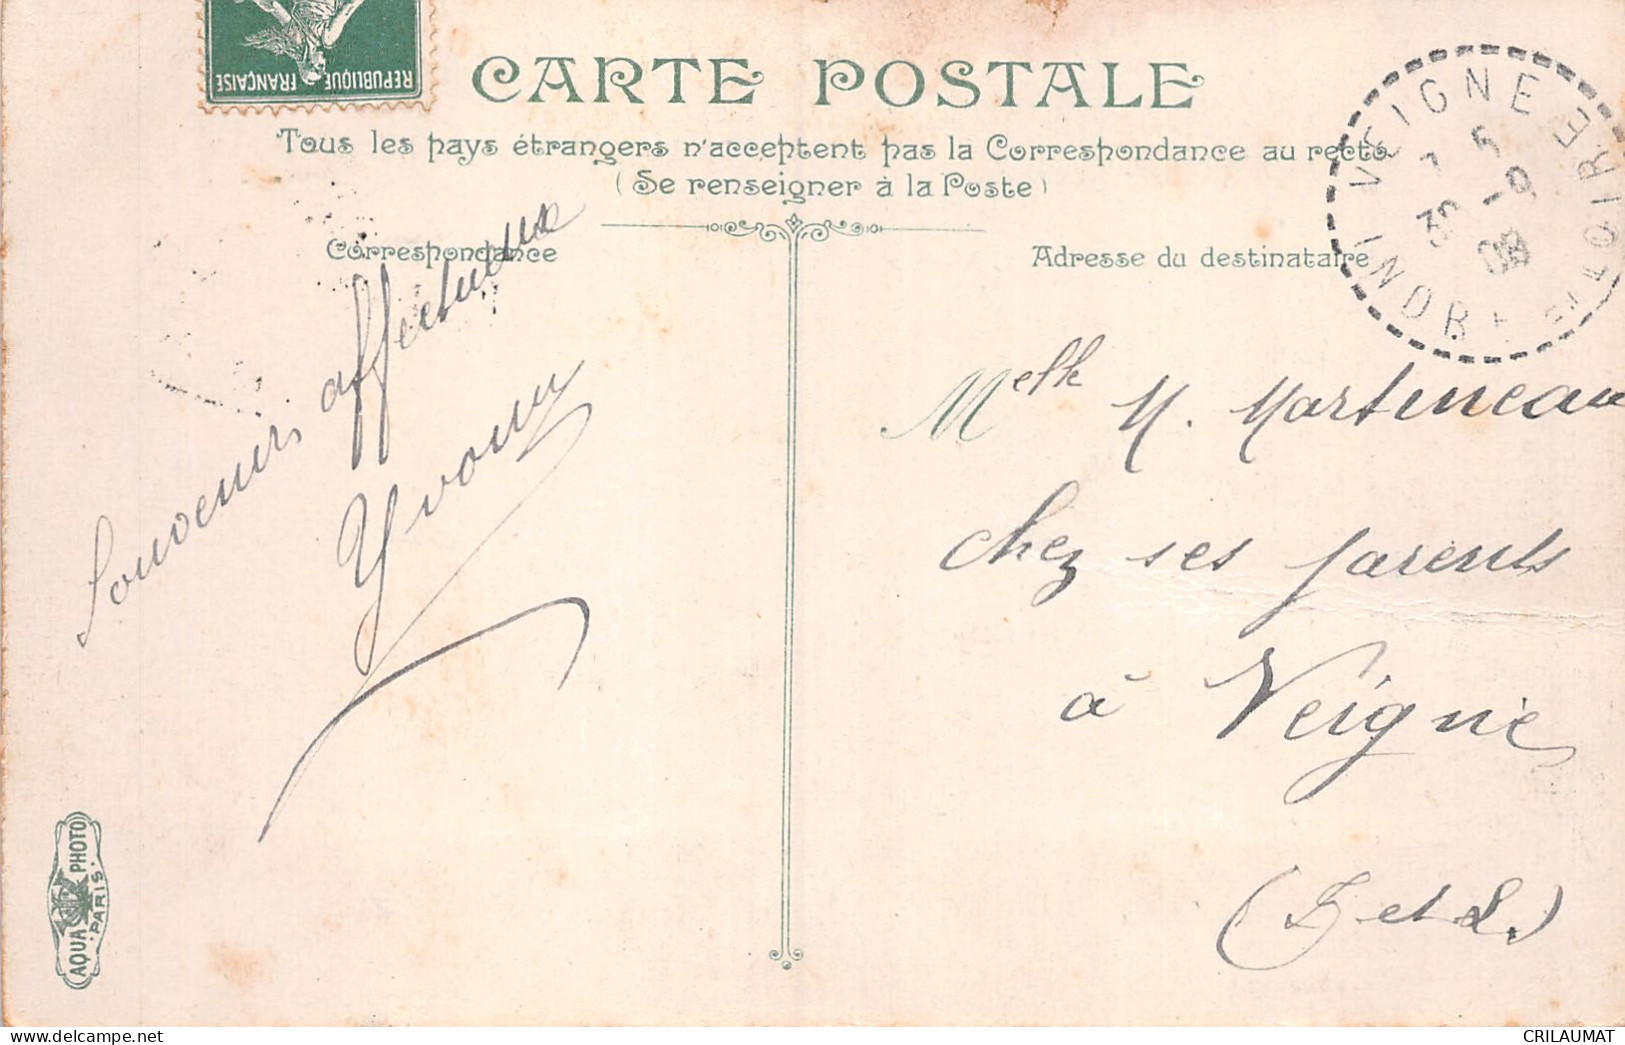 REPUBLIQUE FRANÇAISE
CARTE POSTALE
Tous les pays étrangers n'acceptent pas la Correspondance au recto
(Se renseigner à la Poste)
Correspondance
Adresse du destinataire
VEIGNE
30 -9
09
INDRE ET LOIRE
Souvenirs affectueux
Yvonne
Melle M. Martineau
chez ses parents
à Veigné
(I et L.)
AQUA PHOTO
PARIS
CRILAUMAT